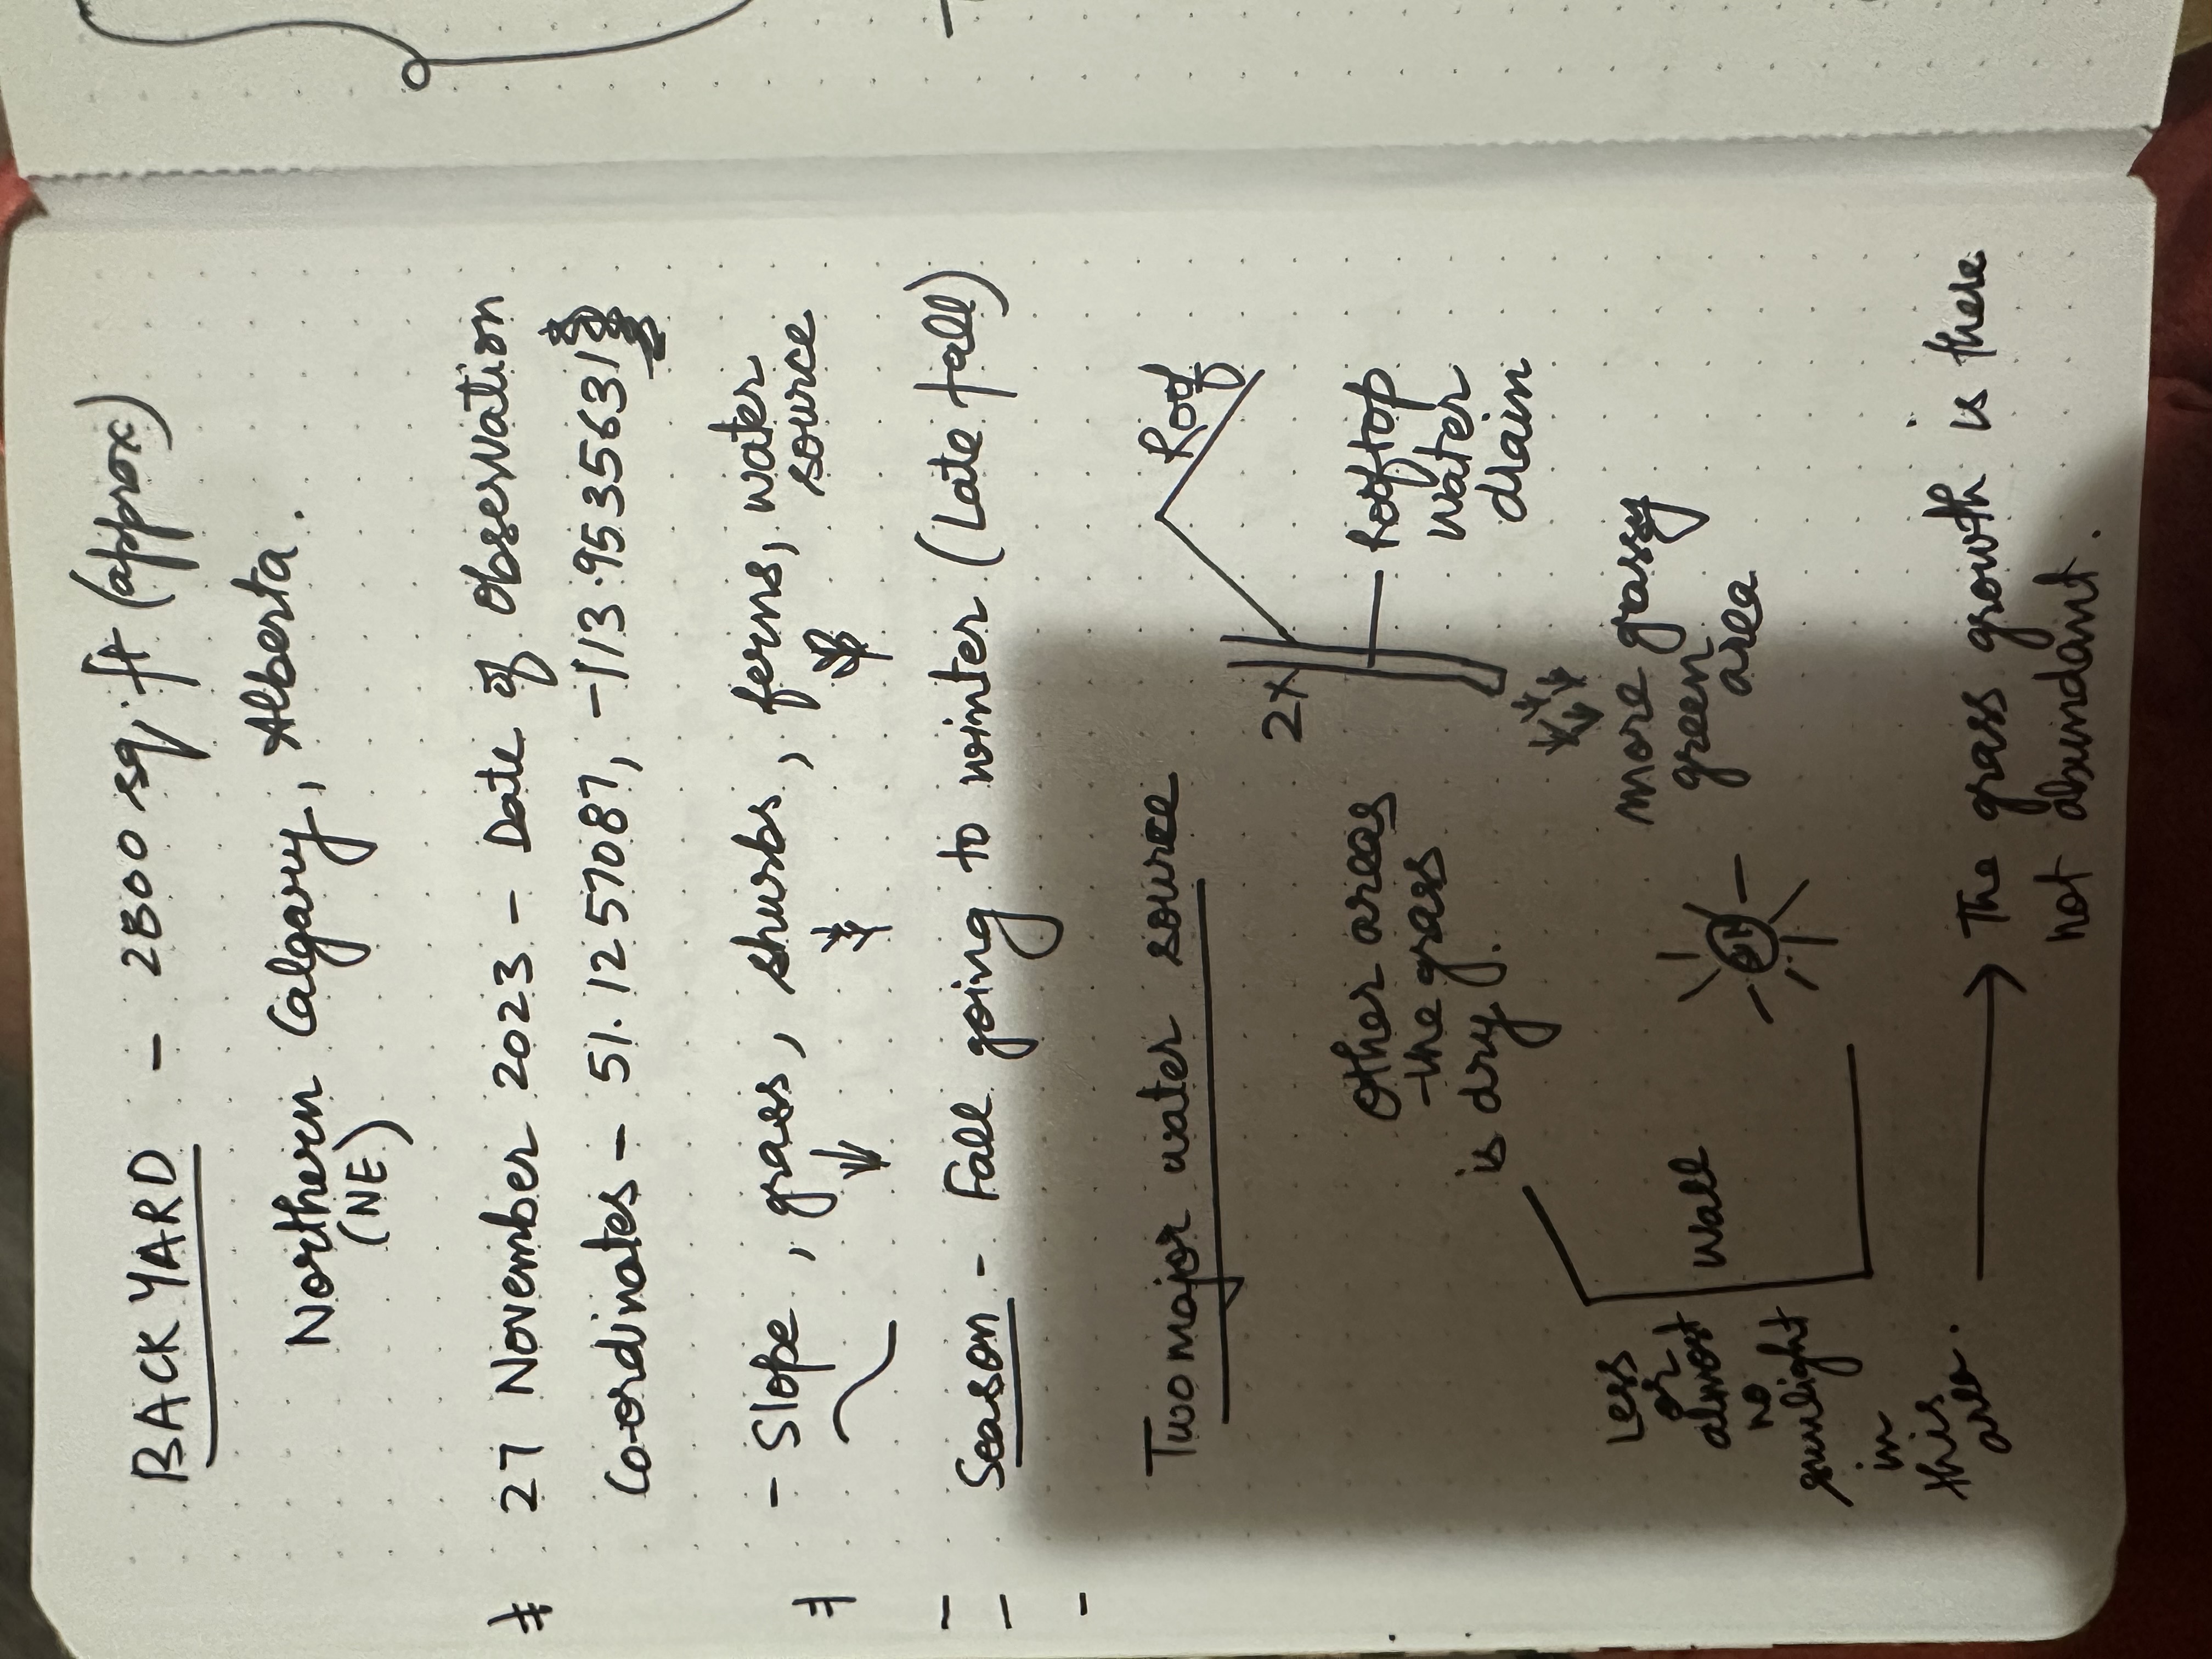 BACK YARD - 2800 sq/ft (approx)
Northern Calgary, Alberta.
(NE)
# 27 November 2023 - Date of observation
Co-ordinates - 51.1257087, -113.9535631
# - Slope, grass, shurbs, ferns, water
source
Season - Fall going to winter (Late fall)
Two major water source
Roof
2x
rooftop
water
drain
Other areas
the grass
is dry.
more grassy
green
area
Wall
Less
or
almost
no
sunlight
in
this
area.
→ The grass growth is there
not abundant.